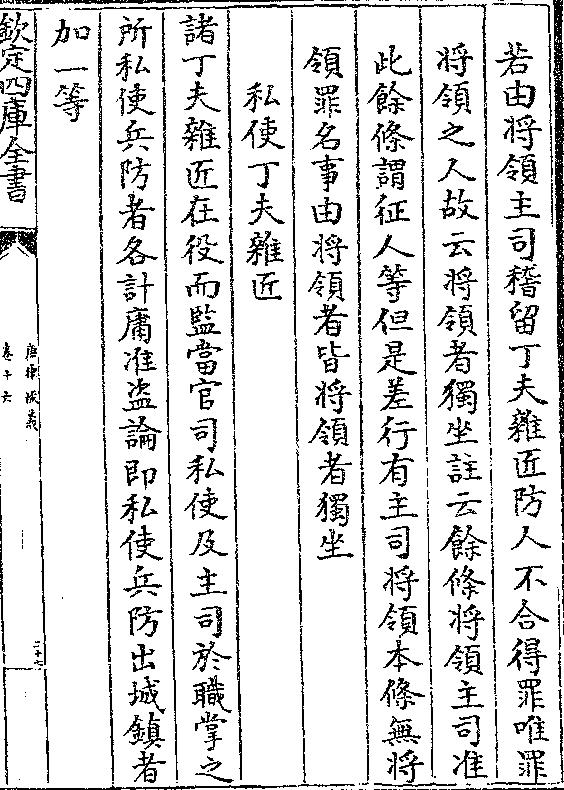 若由將領主司稽留丁夫雜匠防人不合得罪唯罪
將領之人故云將領者獨坐註云餘條將領主司准
此餘條謂征人等但是差行有主司將領本條無將
領罪名事由將領者皆將領者獨坐
私使丁夫雜匠
諸丁夫雜匠在役而監當官司私使及主司於職掌之
所私使兵防者各計庸准盗論即私使兵防出城鎮者
加一等
欽定四庫全書
唐律疏義
卷十六